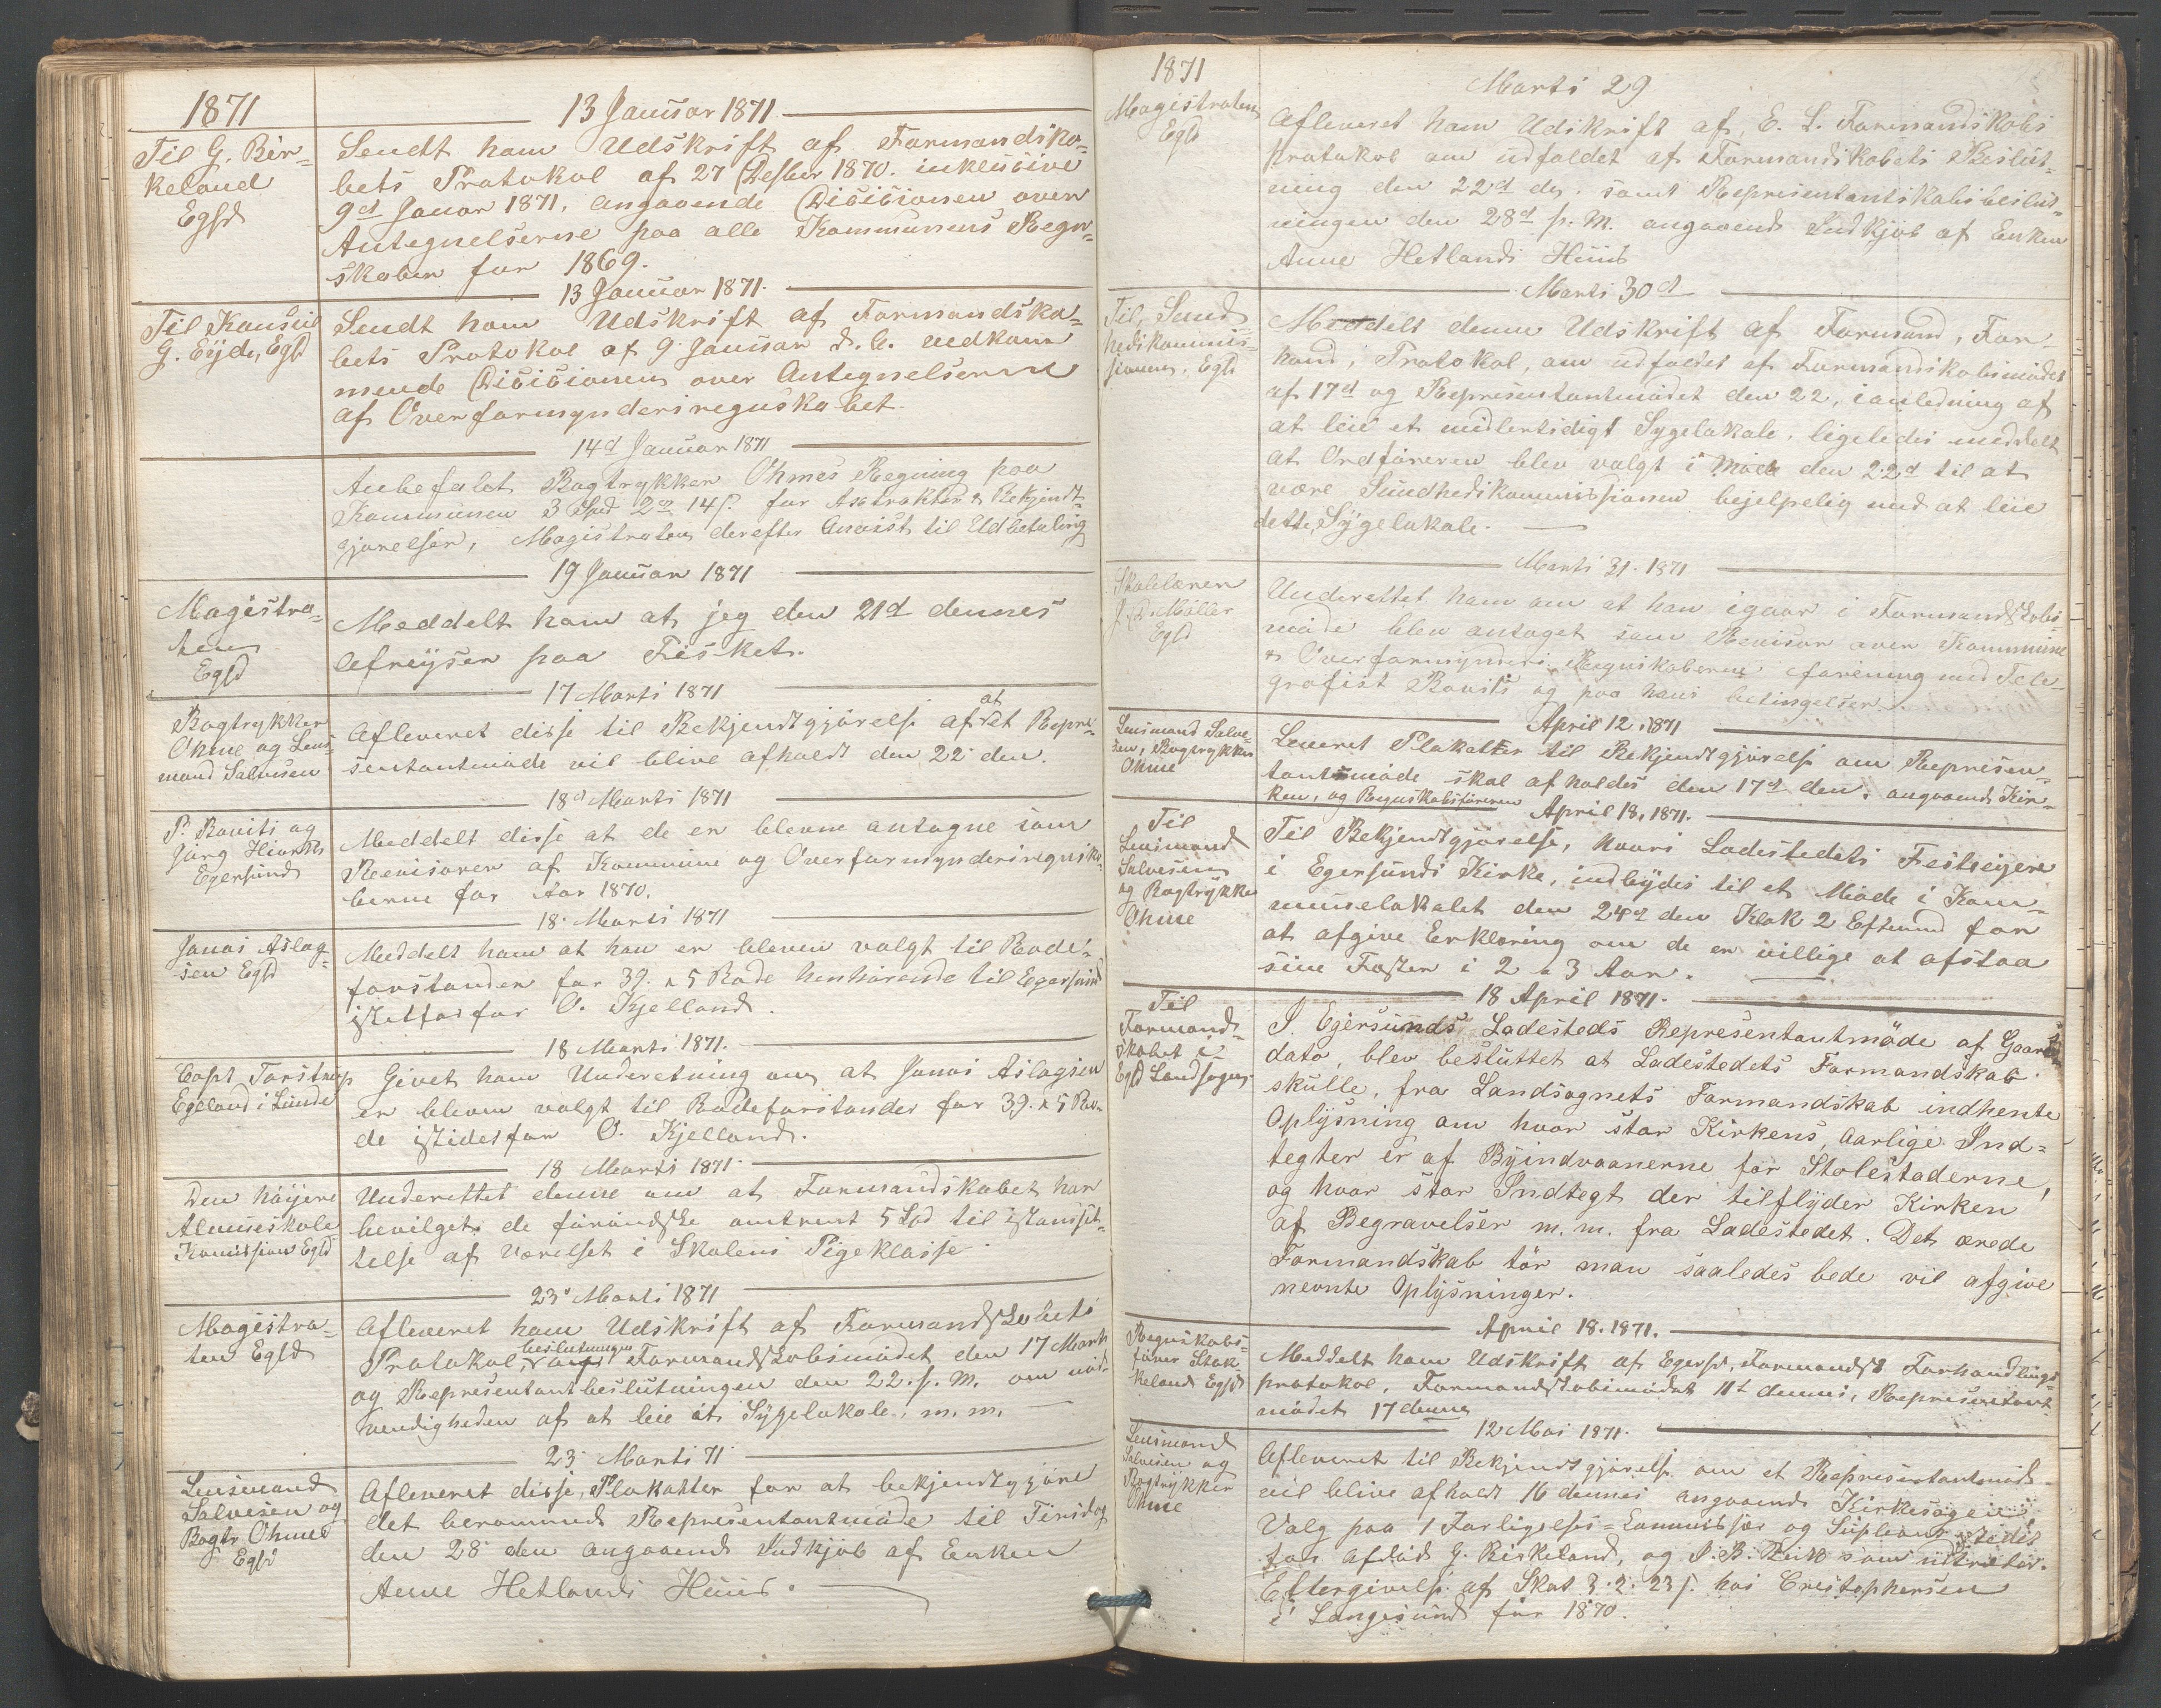 1871
13 Januar 1871
Til G. Bir-
keland
Egsd
Sendt ham Udskrift af Formandska-
bets Protokol af 27 Desber 1870. inklusive
9d Januar 1871, angaaende Disisionen over
Antegnelserne paa alle Kommunens Regn-
skaber for 1869.
13 Januar 1871.
Til Konsul
G. Eyde, Egsd
Sendt ham Udskrift af Formandska-
bets Protokol af 9 Januar d. A. vedkom-
mende Disisionen over Antegnelserne
af Overformynderiregnskabet.
14d Januar 1871
Anbefalet Bogtrykker Ohmes Regning paa
Kommunen 3 Spd 2 14 s. for & Bekjendt-
gjørelser, Magistraten derefter Anvist til Udbetaling
19 Januar 1871
Magistra-
ten
Egsd
Meddelt ham at jeg den 21d dennes
Afreyser paa Fisket.
17 Marti 1871
Bogtrykker
Ohme og Lens-
mand Salvesen
Afleveret disse til Bekjendtgjørelse af at det Repre-
sentantmøde vil blive afholdt den 22 den.
18d Marti 1871
P. Ravits og
Jørg Hiorth
Egersund
Meddelt disse at de er blevne antagne som
Revisorer af Kommune og Overformynderiregnska-
berne for Aar 1870.
18 Marti 1871
Jonas Aslag-
sen Egsd
Meddelt ham at han er bleven valgt til Rode-
forstander for 39. & 5 Rode henhørende til Egersund
istedfor for O. Kjelland.
18 Marti 1871.
Capt Torstrup
Egeland i Lunde
Givet ham Underetning om at Jonas Aslagsen
er bleven valgt til Rodeforstander for 39. & 5 Ro-
de istedetfor O. Kjelland.
18 Marti 1871
Den høiere
Almueskole
Komission Egsd
Underettet denne om at Formandskabet har
bevilget de forønskte omtrent 5 Spd til istandsæt-
telse af Værelset i Skolens Pigeklasse.
23d Marti 1871
Magistra-
ten Egsd
Afleveret ham Udskrift af Formandskabets
Protokol, beslutningen Formandskabsmødet den 17 Marti
og Representantbeslutningen den 22. s. M. om nød-
vendigheden af at leie et Sygelokale, m. m.
23 Marti 71
Lensmand
Salvesen og
Bogtr Ohme
Egsd
Afleveret disse, Plakatter for at bekjendtgjøre
det berammede Representantmøde til Tirsdag
den 28 den angaaende Indkjøb af Enken
Anne Hetlands Huus.
1871
Marti 29
Magistraten
Egsd
Afleveret ham Udskrift af E. L. Formandskabs
protokol om udfaldet af Formandskabets Beslut-
ning den 22d ds. samt Representantskabsbeslut-
ningen den 28d s. M. angaaende Indkjøb af Enken
Anne Hetlands Huus
Marti 30d
Til Sund-
hedskommis-
sionen. Egsd
Meddelt denne Udskrift af Formand, For-
hand, Protokol, om udfaldet af Formandskabsmødet
af 17d og Representantmødet den 22, i anledning af
at leie et midlertidigt Sygelokale, ligeledes meddelt
at Ordføreren blev valgt i Møde den 22d til at
være Sundhedskommissionen hjelpelig med at leie
dette Sygelokale.
Marti 31. 1871
Skolelærer
Møller
Egsd
Underettet ham om at han igaar i Formandskabs-
møde blev antaget som Revisor over Kommune
& Overformynderi Regnskaberne i forening med Tele-
grafist Ravits og paa hans betingelser.
April 12, 1871
Lensmand Salve-
sen, Bogtrykker
Ohme
Leveret Plakatter til Bekjendtgjørelse om Represen-
tantmøde skal afholdes den 17d den. angaaende Kir-
ken, og Regnskabsføreren
April 18, 1871.
Til
Lensmand
Salvesen
og Bogtrykker
Ohme
Til Bekjendtgjørelse, hvori Ladestedets Festeiere
i Egersunds Kirke, indbydes til et Møde i Kom-
munelokalet den 24d den Klok 2 Eftermd for
at afgive Erklæring om de er villige at afstaa
sine Fæster i 2 a 3 Aar.
18 April 1871.
Til
Formand-
skabet i
Egsd Landsogn
I Egersunds Ladesteds Representantmøde af Gaars
dato, blev besluttet at Ladestedets Formandskab
skulle, fra Landsognets Formandskab indhente
Oplysning om hvor stor Kirkens, aarlige Ind-
tegter er af Byindvaanerne for Stolestaderne,
og hvor stor Indtegt der tilflyder Kirken
af Begravelser m. m. fra Ladestedet. Det ærede
Formandskab tør man saaledes bede vil afgive
nevnte Oplysninger.
April 18. 1871.
Regnskabs-
fører Stok-
keland Egsd
Meddelt ham Udskrift af Egersd, Formandsk Forhandlings-
protokol, Formandskabsmødet 11t dennes, Representant-
mødet 17 dennes
12 Mai 1871.
Lensmand
Salvesen og
Bogtrykker
Ohme
Afleveret til Bekjendtgjørelse om et Representantmøde
vil blive afholdt 16 dennes angaaende Kirkesagen
Valg paa 1 Forligelses-Commissær og Supleant istedet
for afdød G. Birkeland, og P. B. som udtræder.
Eftergivelse af Skat 3. 2. 23 s. hos Crestophersen
i Langesund for 1870.